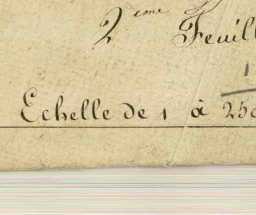 2ème Feuill
1
Echelle de 1 à 250